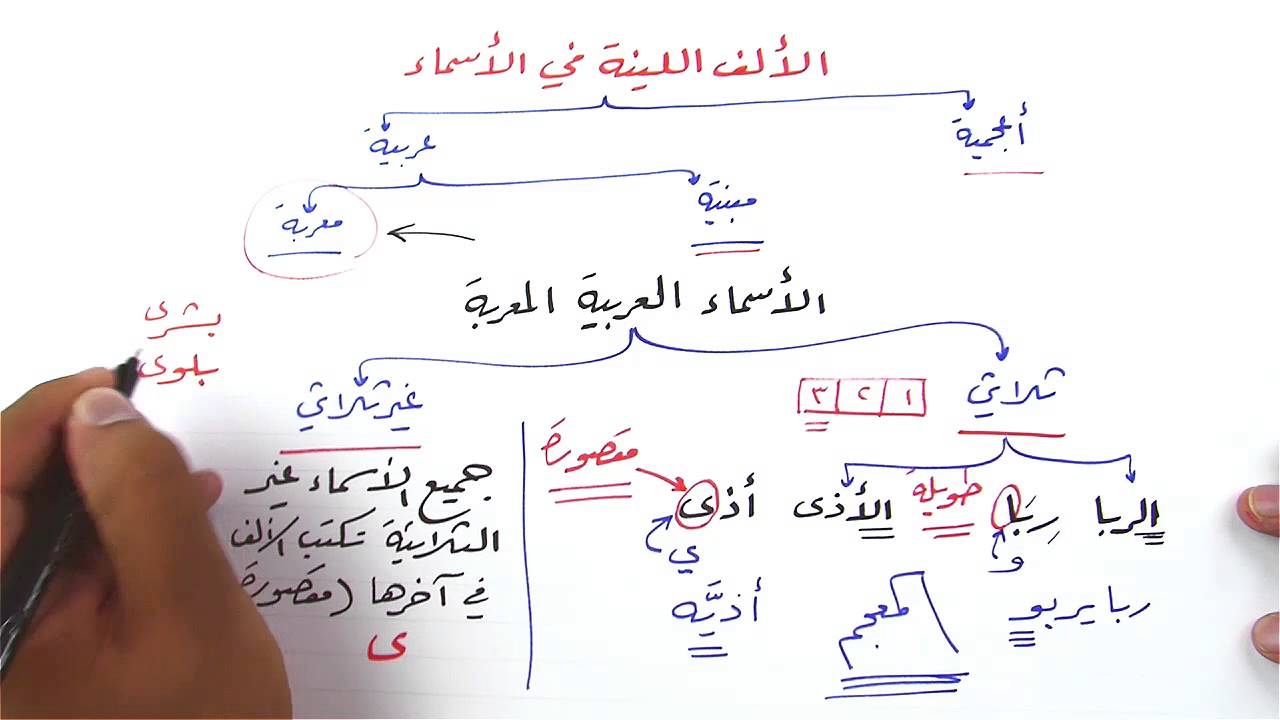 الألف اللينة في الأسماء
أعجمية
عربية
مبنية
معربة
الأسماء العربية المعربة
ثلاثي
١ ٢ ٣
غير ثلاثي
الربا رِبَا طويلة الأذى أذى مقصورة
و
ي
ربا يربو
المعجم
أذيَّه
جميع الأسماء غير
الثلاثية تكتب الألف
في آخرها (مقصورة
ى
بشرى
بلوى